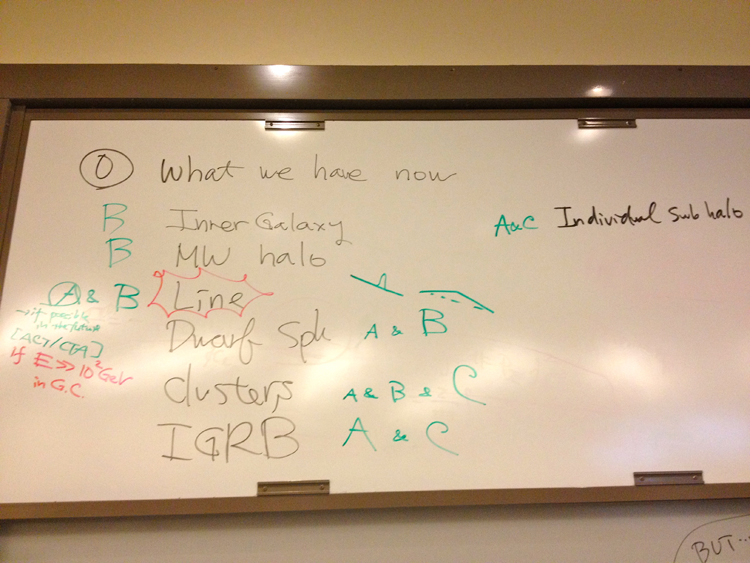 0 What we have now
B Inner Galaxy
A&C Individual Subhalo
B MW halo
A & B Line
→ if possible
in the future
[ACT/CTA]
if E >> 10² GeV
in G.C.
Dwarf Sph A & B
clusters A & B & C
IGRB A & C
BUT...